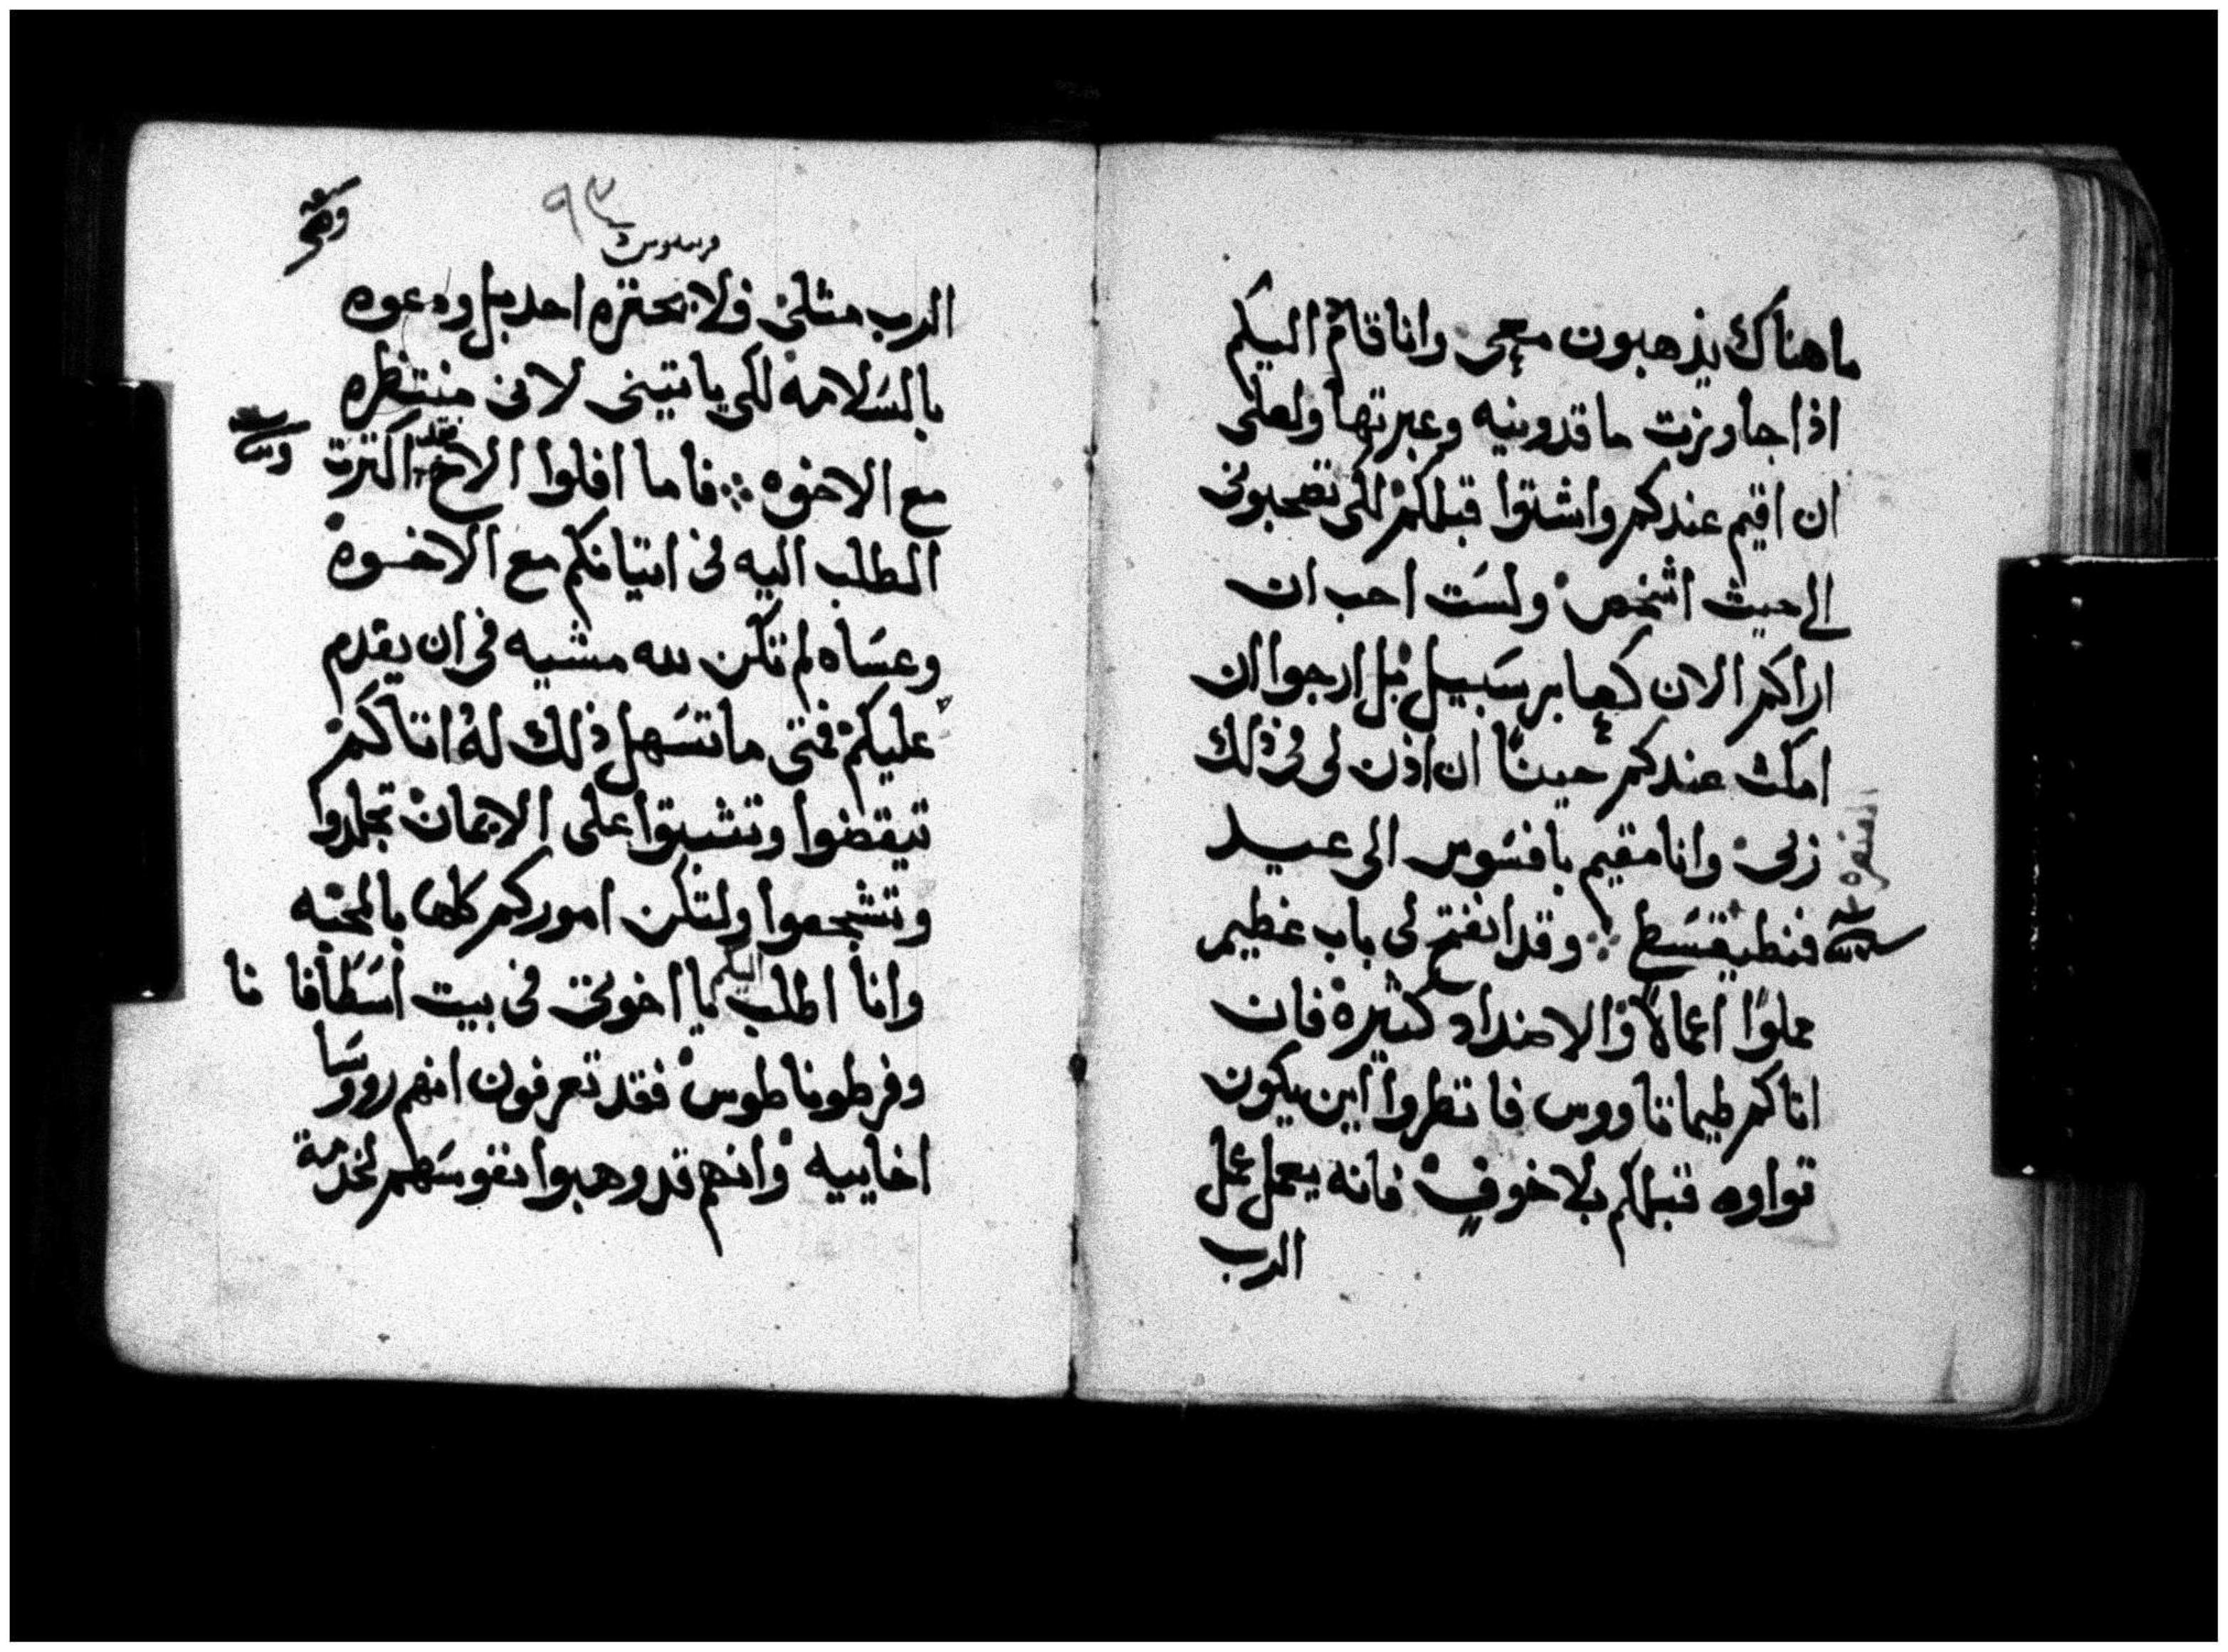 ما هناك يذهبون معي وانا قادم اليكم
اذا جاوزت ماقدونيه وعبرتها ولعلى
ان اقيم عندكم واشتوا قبلكم لكى تصحبونى
الى حيث اشخص ولست احب ان
اراكم الان كعابر سبيل بل ارجوا ان
امكث عندكم حينا ان اذن لى فى ذلك
ربى وانا مقيم بافسوس الى عيد
فنطيقسطى وقد انفتح لى باب عظيم
مملوا اعمالا والاضداد كثيره فان
اتاكم طيماتاووس فانظروا اين يكون
ثواوه قبلكم بلا خوف فانه يعمل عمل
الرب
٩٣
الرب مثلى فلا يحتقره احد بل ودعوه
بالسلامه لكى ياتينى لانى منتظره
مع الاخوه فاما افلوا الاخ فقد اكثرت
الطلب اليه فى اتيانكم مع الاخوه
وعساه لم تكن لله مشيه فى ان يقدم
عليكم فمتى ما تسهل ذلك له اتاكم
تيقضوا وتثبتوا على الايمان تجلدوا
وتشجعوا ولتكن اموركم كلها بالمحبه
وانا اطلب اليكم يا اخوتى فى بيت اسطافانا
وفرطوناطوس فقد تعرفون انهم رووسا
اخاييه وانهم قد وهبوا نفوسهم لخدمة